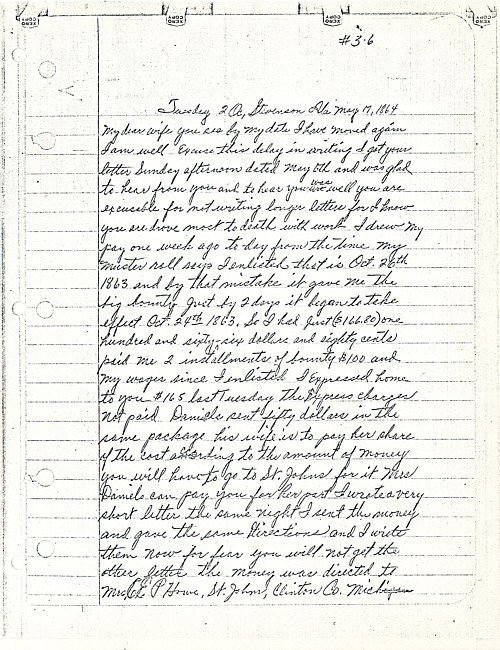 #36
Tuesday 2 O, Stevenson Ala May 17, 1864
My dear wife you see by my date I have moved again
I am well. Excuse this delay in writing I got your
letter Sunday afternoon dated May 6th and was glad
to hear from you and to hear you was well you are
excusable for not writing longer letters for I know
you are drove most to death with work I drew my
pay one week ago to day from the time my
muster roll says I enlisted that is Oct. 26th
1863 and by that mistake it gave me the
big bounty Just by 2 days it began to take
effect Oct. 24th 1863, So I had Just ($166.80) one
hundred and sixty-six dollars and eighty cents
paid me 2 installments of bounty $100 and
my wages since I enlisted I Expressed home
to you $165 last Tuesday the Express charges
not paid Daniels sent fifty dollars in the
same package his wife is to pay her share
of the cost according to the amount of money
you will have to go to St. Johns for it Mrs
Daniels can pay you for her part I wrote a very
short letter the same night I sent the money
and gave the same Directions and I write
them now for fear you will not get the
other letter the money was directed to
Mrs P Howe, St. Johns, Clinton Co. Michigan